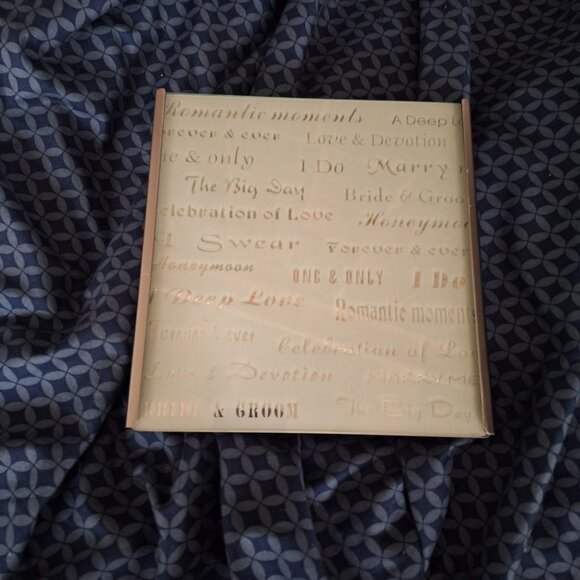 Romantic moments A Deep Lo
orever & ever Love & Devotion
ne & only I Do Marry
The Big Day Bride & Groo
elebration of Love Honeymoo
I Swear Forever & ever
Honeymoon ONE & ONLY I Do
Deep Love Romantic moments
Forever & ever Celebration of Lo
Love & Devotion MARRY ME
BRIDE & GROOM The Big Day